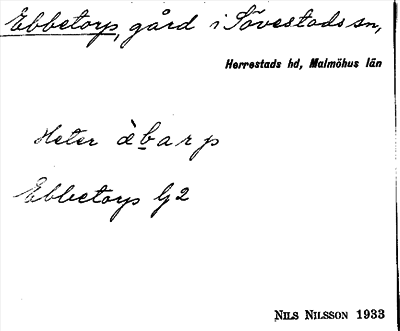 Ebbetorp, gård i Sövestads sn,
Herrestads hd, Malmöhus län
Heter èbarp
Ebbetorps G2
NILS NILSSON 1933